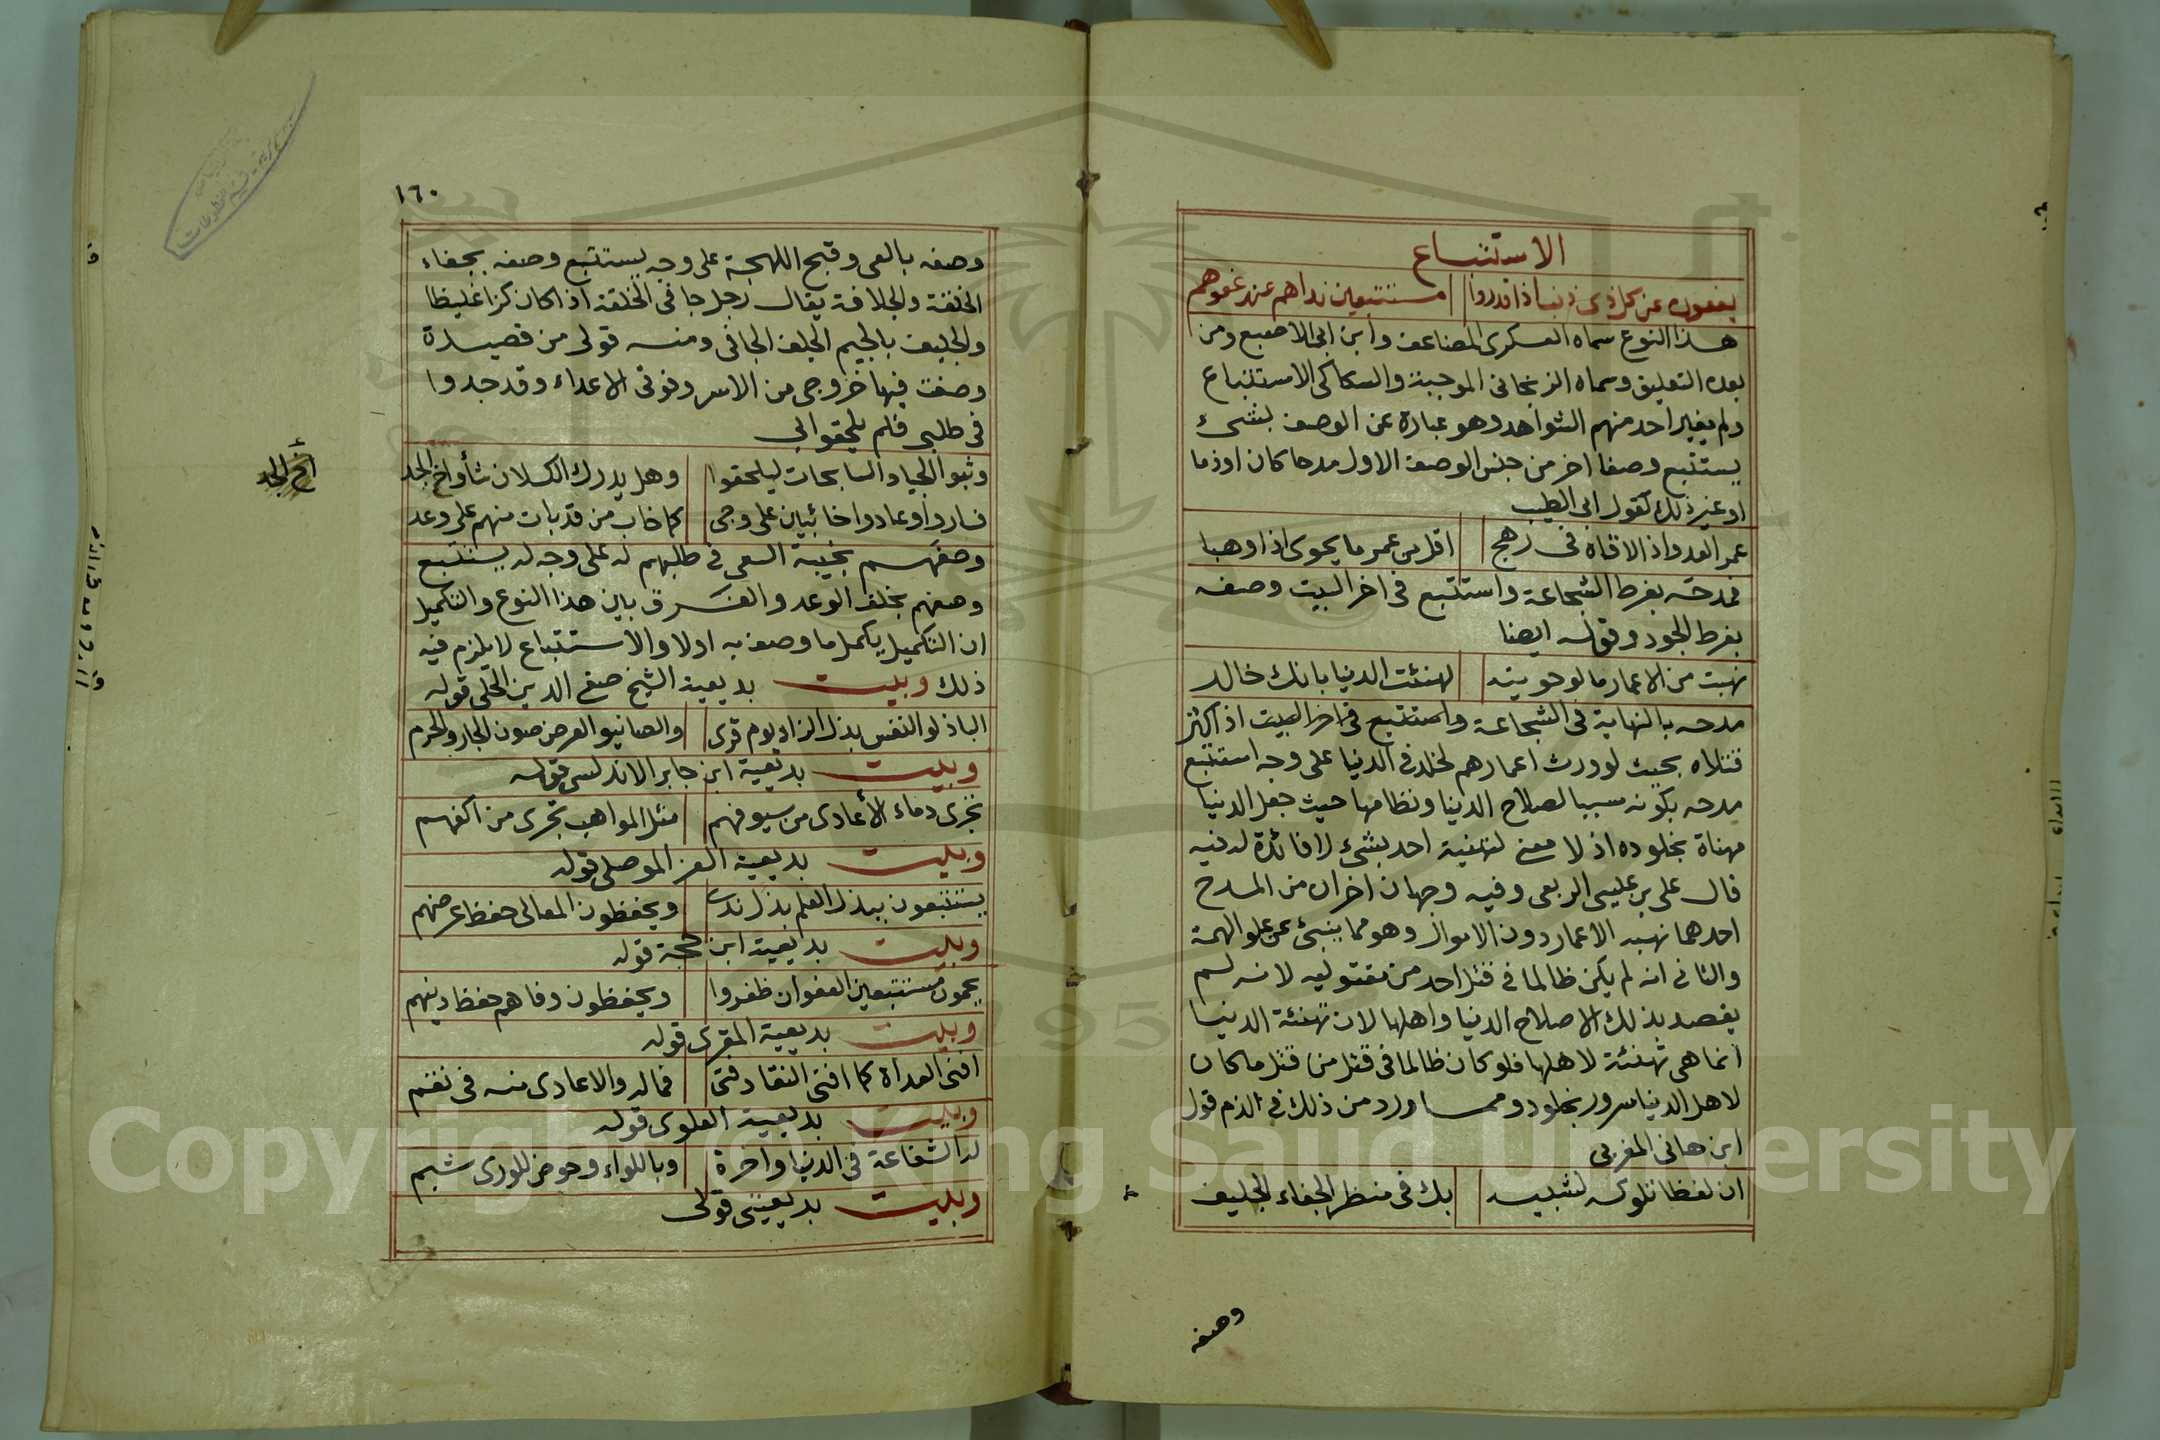 الاستتباع
يعفون عن كل ذي ذنب اذا قدروا مستتبعين نداهم عند عفوهم
هذا النوع سماه العسكري المضاعف وابن ابي الاصبع ومن
بعده التعليق وسماه الزنجاني الموجبة والسكاكي الاستتباع
ولم يغير احد منهم الشواهد وهو عبارة عن الوصف بشيء
يستتبع وصفا اخر من جنس الوصف الاول مدحا كان او ذما
او غير ذلك كقول ابي الطيب
عمر العدو اذا لاقاه في رهج اقل من عمر ما يحوي اذا وهبا
فمدحه بفرط الشجاعة واستتبع في اخر البيت وصفه
بفرط الجود وقوله ايضا
نهبت من الاعمار ما لو حويته لهنئت الدنيا بانك خالد
مدحه بالنهاية في الشجاعة واستتبع في اخر البيت اذ اكثر
قتلاه بحيث لو ورث اعمارهم لخلد في الدنيا على وجه استتبع
مدحه بكونه سببا لصلاح الدنيا ونظامها حيث جعل الدنيا
مهناة بخلوده اذ لا معنى لتهنية احد بشيء لا فائدة له فيه
قال علي بن عيسى الربعي وفيه وجهان اخران من المدح
احدهما نهبه الاعمار دون الاموال وهو مما ينبئ عن علو الهمة
والثاني انه لم يكن ظالما في قتل احد من مقتوليه لانه لم
يقصد بذلك الا صلاح الدنيا واهلها لان تهنئة الدنيا
انما هي تهنئة لاهلها فلو كان ظالما في قتل من قتل ما كان
لاهل الدنيا سرور بخلوده ومما ورد من ذلك في الذم قول
ابن هاني المغربي
ان لفظا تلوكه لشبيه بك في منظر الجفاء الجليف
وصفه
١٦٠
وصفه بالعي وقبح اللهجة على وجه يستتبع وصفه بجفاء
الخلقة والجلافة يقال رجل جافي الخلقة اذا كان كزا غليظا
والجليف بالجيم الجلف الجافي ومنه قولي من قصيدة
وصفت فيها خروجي من الاسر وفوتي الاعداء وقد جدوا
في طلبي فلم يلحقوا بي
وثبوا الجياد السابحات ليلحقوا وهل يدرك الكسلان شأو اخ الجد
فساروا وعادوا خائبين على وجى كما خاب من قد بات منهم على وعد
وصفهم بخيبة السعي في طلبهم له على وجه له يستتبع
وصفهم بخلف الوعد والفرق بين هذا النوع والتكميل
ان التكميل يكمل ما وصف به اولا والاستتباع لا يلزم فيه
ذلك وبيت بديعية الشيخ صفي الدين الحلي قوله
الباذلو النفس بذل الزاد يوم قرى والصائنو العرض صون الجار والحرم
وبيت بديعية ابن جابر الاندلسي قوله
تجري دماء الأعادي من سيوفهم مثل المواهب تجري من اكفهم
وبيت بديعية العز الموصلي قوله
يستتبعون ببذل العلم بذل ندى ويحفظون المعالي حفظ عرضهم
وبيت بديعية ابن حجة قوله
يحمون مستتبعين العفو ان ظفروا ويحفظون وفاهم حفظ دينهم
وبيت بديعية المقري قوله
افنى العداة كما افنى النقاد فتى فماله والاعادي منه في نقم
وبيت بديعية العلوي قوله
له الشفاعة في الدنيا واخرة وباللواء وحوض للورى شبم
وبيت بديعيتي قولي
أخ الجد
Copyright © King Saud University
1957